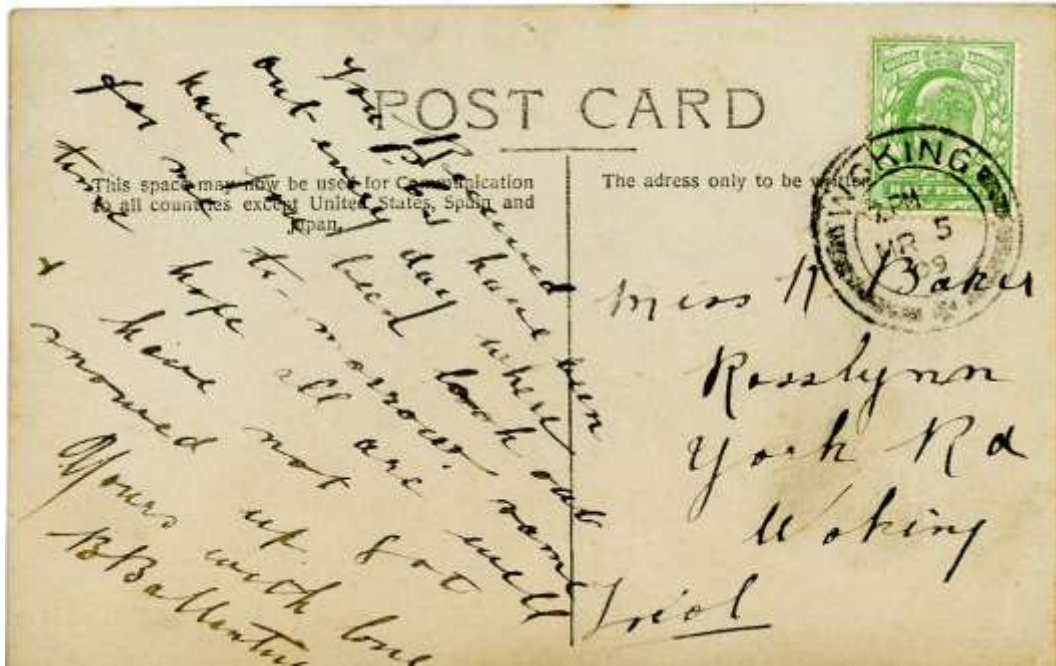 POST CARD
This space may now be used for Communication
to all countries except United States, Spain and
Japan.
The adress only to be written
WOKING
PM
MR 5
09
You Received
P.C. was have been
out every day where
have you been look out
for me to-morrow some
time hope all are well
& have not got
snowed up
Yours with love
B Ballantine
Miss N Baker
Rosslynn
York Rd
Woking